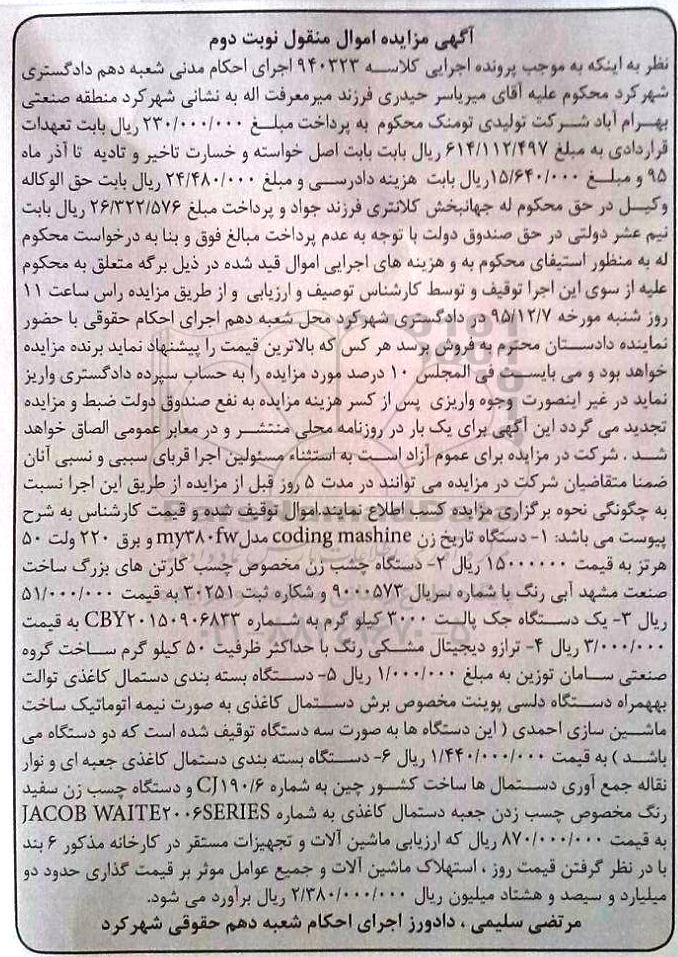 آگهی مزایده اموال منقول نوبت دوم
نظر به اینکه به موجب پرونده اجرایی کلاسه ۹۴۰۳۲۳ اجرای احکام مدنی شعبه دهم دادگستری
شهرکرد محکوم علیه آقای میریاسر حیدری فرزند میرمعرفت اله به نشانی شهرکرد منطقه صنعتی
بهرام آباد شرکت تولیدی تومنک محکوم به پرداخت مبلغ ۲۳۰/۰۰۰/۰۰۰ ریال بابت تعهدات
قراردادی به مبلغ ۶۱۴/۱۱۲/۴۹۷ ریال بابت بابت اصل خواسته و خسارت تاخیر و تادیه تا آذر ماه
۹۵ و مبلغ ۱۵/۶۴۰/۰۰۰ریال بابت هزینه دادرسی و مبلغ ۲۴/۴۸۰/۰۰۰ ریال بابت حق الوکاله
وکیل در حق محکوم له جهانبخش کلانتری فرزند جواد و پرداخت مبلغ ۲۶/۳۲۲/۵۷۶ ریال بابت
نیم عشر دولتی در حق صندوق دولت با توجه به عدم پرداخت مبالغ فوق و بنا به درخواست محکوم
له به منظور استیفای محکوم به و هزینه های اجرایی اموال قید شده در ذیل برگه متعلق به محکوم
علیه از سوی این اجرا توقیف و توسط کارشناس توصیف و ارزیابی و از طریق مزایده راس ساعت ۱۱
روز شنبه مورخه ۹۵/۱۲/۷ در دادگستری شهرکرد محل شعبه دهم اجرای احکام حقوقی با حضور
نماینده دادستان محترم به فروش برسد هر کس که بالاترین قیمت را پیشنهاد نماید برنده مزایده
خواهد بود و می بایست فی المجلس ۱۰ درصد مورد مزایده را به حساب سپرده دادگستری واریز
نماید در غیر اینصورت وجوه واریزی پس از کسر هزینه مزایده به نفع صندوق دولت ضبط و مزایده
تجدید می گردد این آگهی برای یک بار در روزنامه محلی منتشر و در معابر عمومی الصاق خواهد
شد . شرکت در مزایده برای عموم آزاد است به استثناء مسئولین اجرا قربای سببی و نسبی آنان
ضمنا متقاضیان شرکت در مزایده می توانند در مدت ۵ روز قبل از مزایده از طریق این اجرا نسبت
به چگونگی نحوه برگزاری مزایده کسب اطلاع نمایند.اموال توقیف شده و قیمت کارشناس به شرح
پیوست می باشد: ۱- دستگاه تاریخ زن coding mashine مدلmy۳۸۰fw و برق ۲۲۰ ولت ۵۰
هرتز به قیمت ۱۵۰۰۰۰۰۰ ریال ۲- دستگاه چشب زن مخصوص چسب کارتن های بزرگ ساخت
صنعت مشهد آبی رنگ با شماره سریال ۹۰۰۰۵۷۳ و شکاره ثبت ۳۰۲۵۱ به قیمت ۵۱/۰۰۰/۰۰۰
ریال ۳- یک دستگاه جک پالت ۳۰۰۰ کیلو گرم به شماره CBY۲۰۱۵۰۹۰۶۸۳۳ به قیمت
۳/۰۰۰/۰۰۰ ریال ۴- ترازو دیجیتال مشکی رنگ با حداکثر ظرفیت ۵۰ کیلو گرم ساخت گروه
صنعتی سامان توزین به مبلغ ۱/۰۰۰/۰۰۰ ریال ۵- دستگاه بسته بندی دستمال کاغذی توالت
بههمراه دستگاه دلسی پوینت مخصوص برش دستمال کاغذی به صورت نیمه اتوماتیک ساخت
ماشین سازی احمدی ( این دستگاه ها به صورت سه دستگاه توقیف شده است که دو دستگاه می
باشد ) به قیمت ۱/۴۴۰/۰۰۰/۰۰۰ ریال ۶- دستگاه بسته بندی دستمال کاغذی جعبه ای و نوار
نقاله جمع آوری دستمال ها ساخت کشور چین به شماره CJ۱۹۰/۶ و دستگاه چسب زن سفید
رنگ مخصوص چسب زدن جعبه دستمال کاغذی به شماره JACOB WAITE۲۰۰۶SERIES
به قیمت ۸۷۰/۰۰۰/۰۰۰ ریال که ارزیابی ماشین آلات و تجهیزات مستقر در کارخانه مذکور ۶ بند
با در نظر گرفتن قیمت روز ، استهلاک ماشین آلات و جمیع عوامل موثر بر قیمت گذاری حدود دو
میلیارد و سیصد و هشتاد میلیون ریال ۲/۳۸۰/۰۰۰/۰۰۰ ریال برآورد می شود.
مرتضی سلیمی ، دادورز اجرای احکام شعبه دهم حقوقی شهرکرد